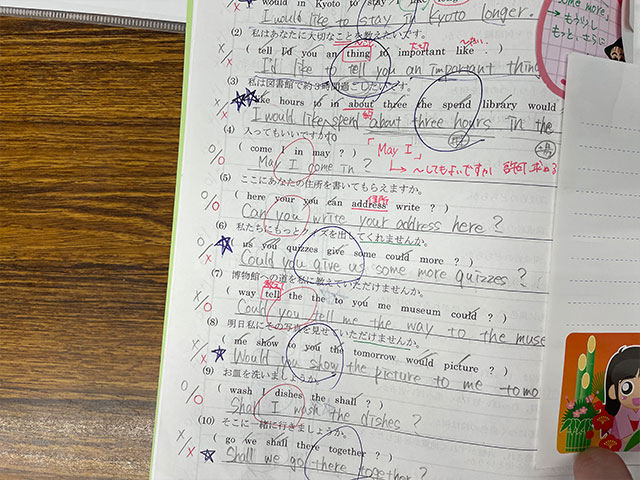 would in Kyoto to stay I like long
I would like to stay in Kyoto longer.
(2) 私はあなたに大切なことを教えたいです。
( tell I'd you an thing to important like )
I'd like to tell you an important thing
(3) 私は図書館で約3時間過ごしたいです。
like hours to in about three the spend library would
I would like spend about three hours in the
(4) 入ってもいいですか。
「May I」
( come I in may ? )
May I come in ?
〜してもよいですか 許可 求める
(5) ここにあなたの住所を書いてもらえますか。
( here your you can address write ? )
Can you write your address here ?
(6) 私たちにもっとクイズを出してくれませんか。
( us you quizzes give some could more ? )
Could you give us some more quizzes ?
(7) 博物館への道を私に教えていただけませんか。
( way tell the the to you me museum could ? )
Could you tell me the way to the muse
(8) 明日私にその写真を見せていただけませんか。
( me show to you the tomorrow would picture ? )
Would you show the picture to me tomo
(9) お皿を洗いましょうか。
( wash I dishes the shall ? )
Shall I wash the dishes ?
(10) そこに一緒に行きましょうか。
( go we shall there together ? )
Shall we go there together ?
some more,
→もう少し
もっと、さらに